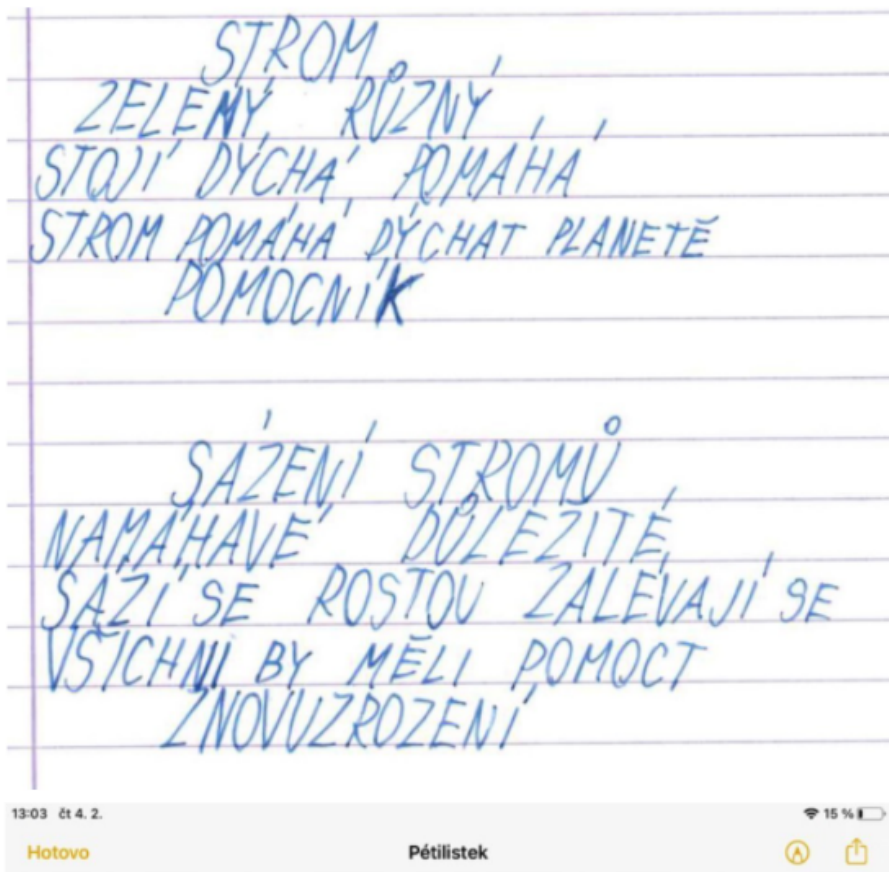 STROM
ZELENÝ RŮZNÝ
STOJÍ DÝCHÁ POMÁHÁ
STROM POMÁHÁ DÝCHAT PLANETĚ
POMOCNÍK
SÁZENÍ STROMŮ
NAMÁHAVÉ DŮLEŽITÉ
SÁZÍ SE ROSTOU ZALÉVAJÍ SE
VŠICHNI BY MĚLI POMOCT
ZNOVUZROZENÍ
13:03 čt 4. 2. 15 %
Hotovo Pétilistek